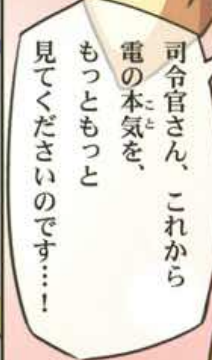 司令官さん、これから
電の本気を、
こと
もっともっと
見てくださいのです…!